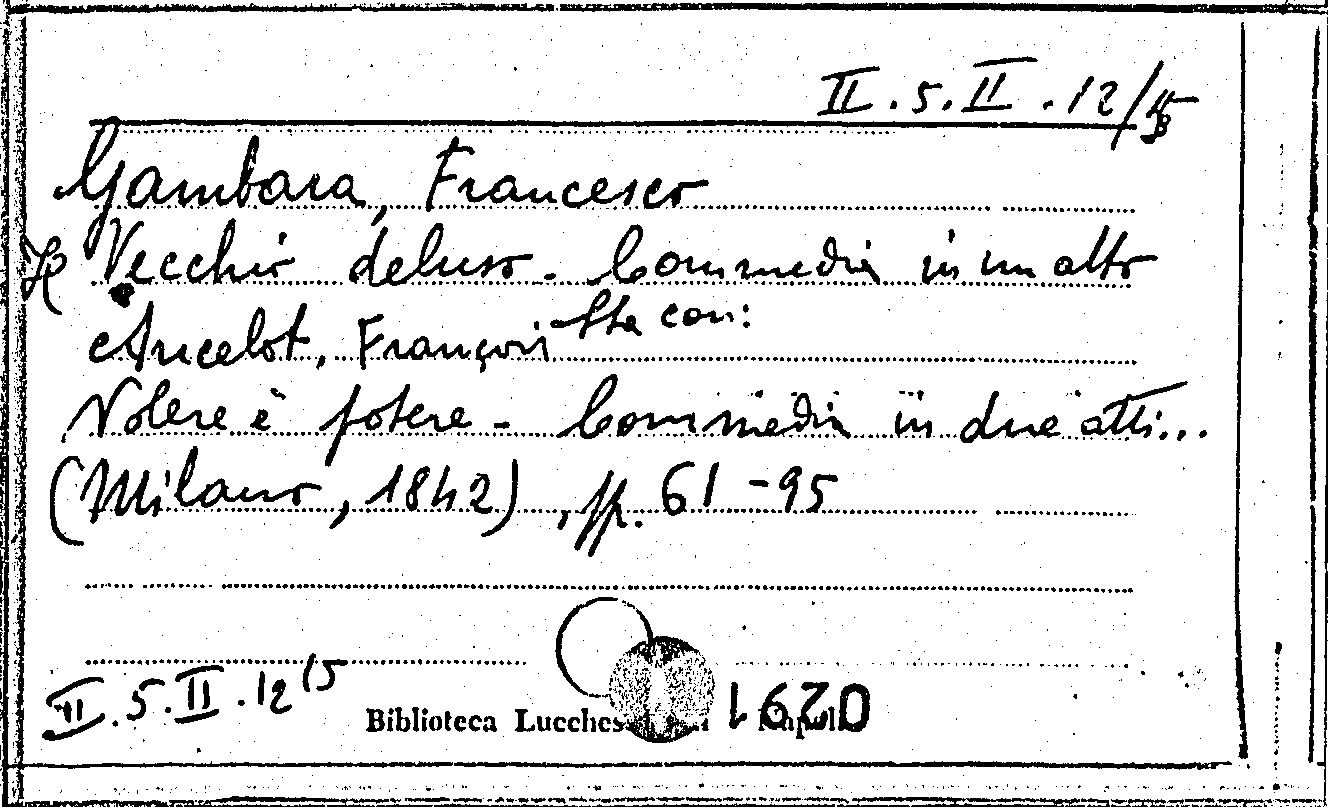 II.5.II.12/
Gambara, Francesco
Il Vecchio deluso - Commedia in un atto
Sta con:
Ancelot, François
Volere è potere - Commedia in due atti...
(Milano, 1842), pp. 61-95
II.5.II.12 15
Biblioteca Lucchesi